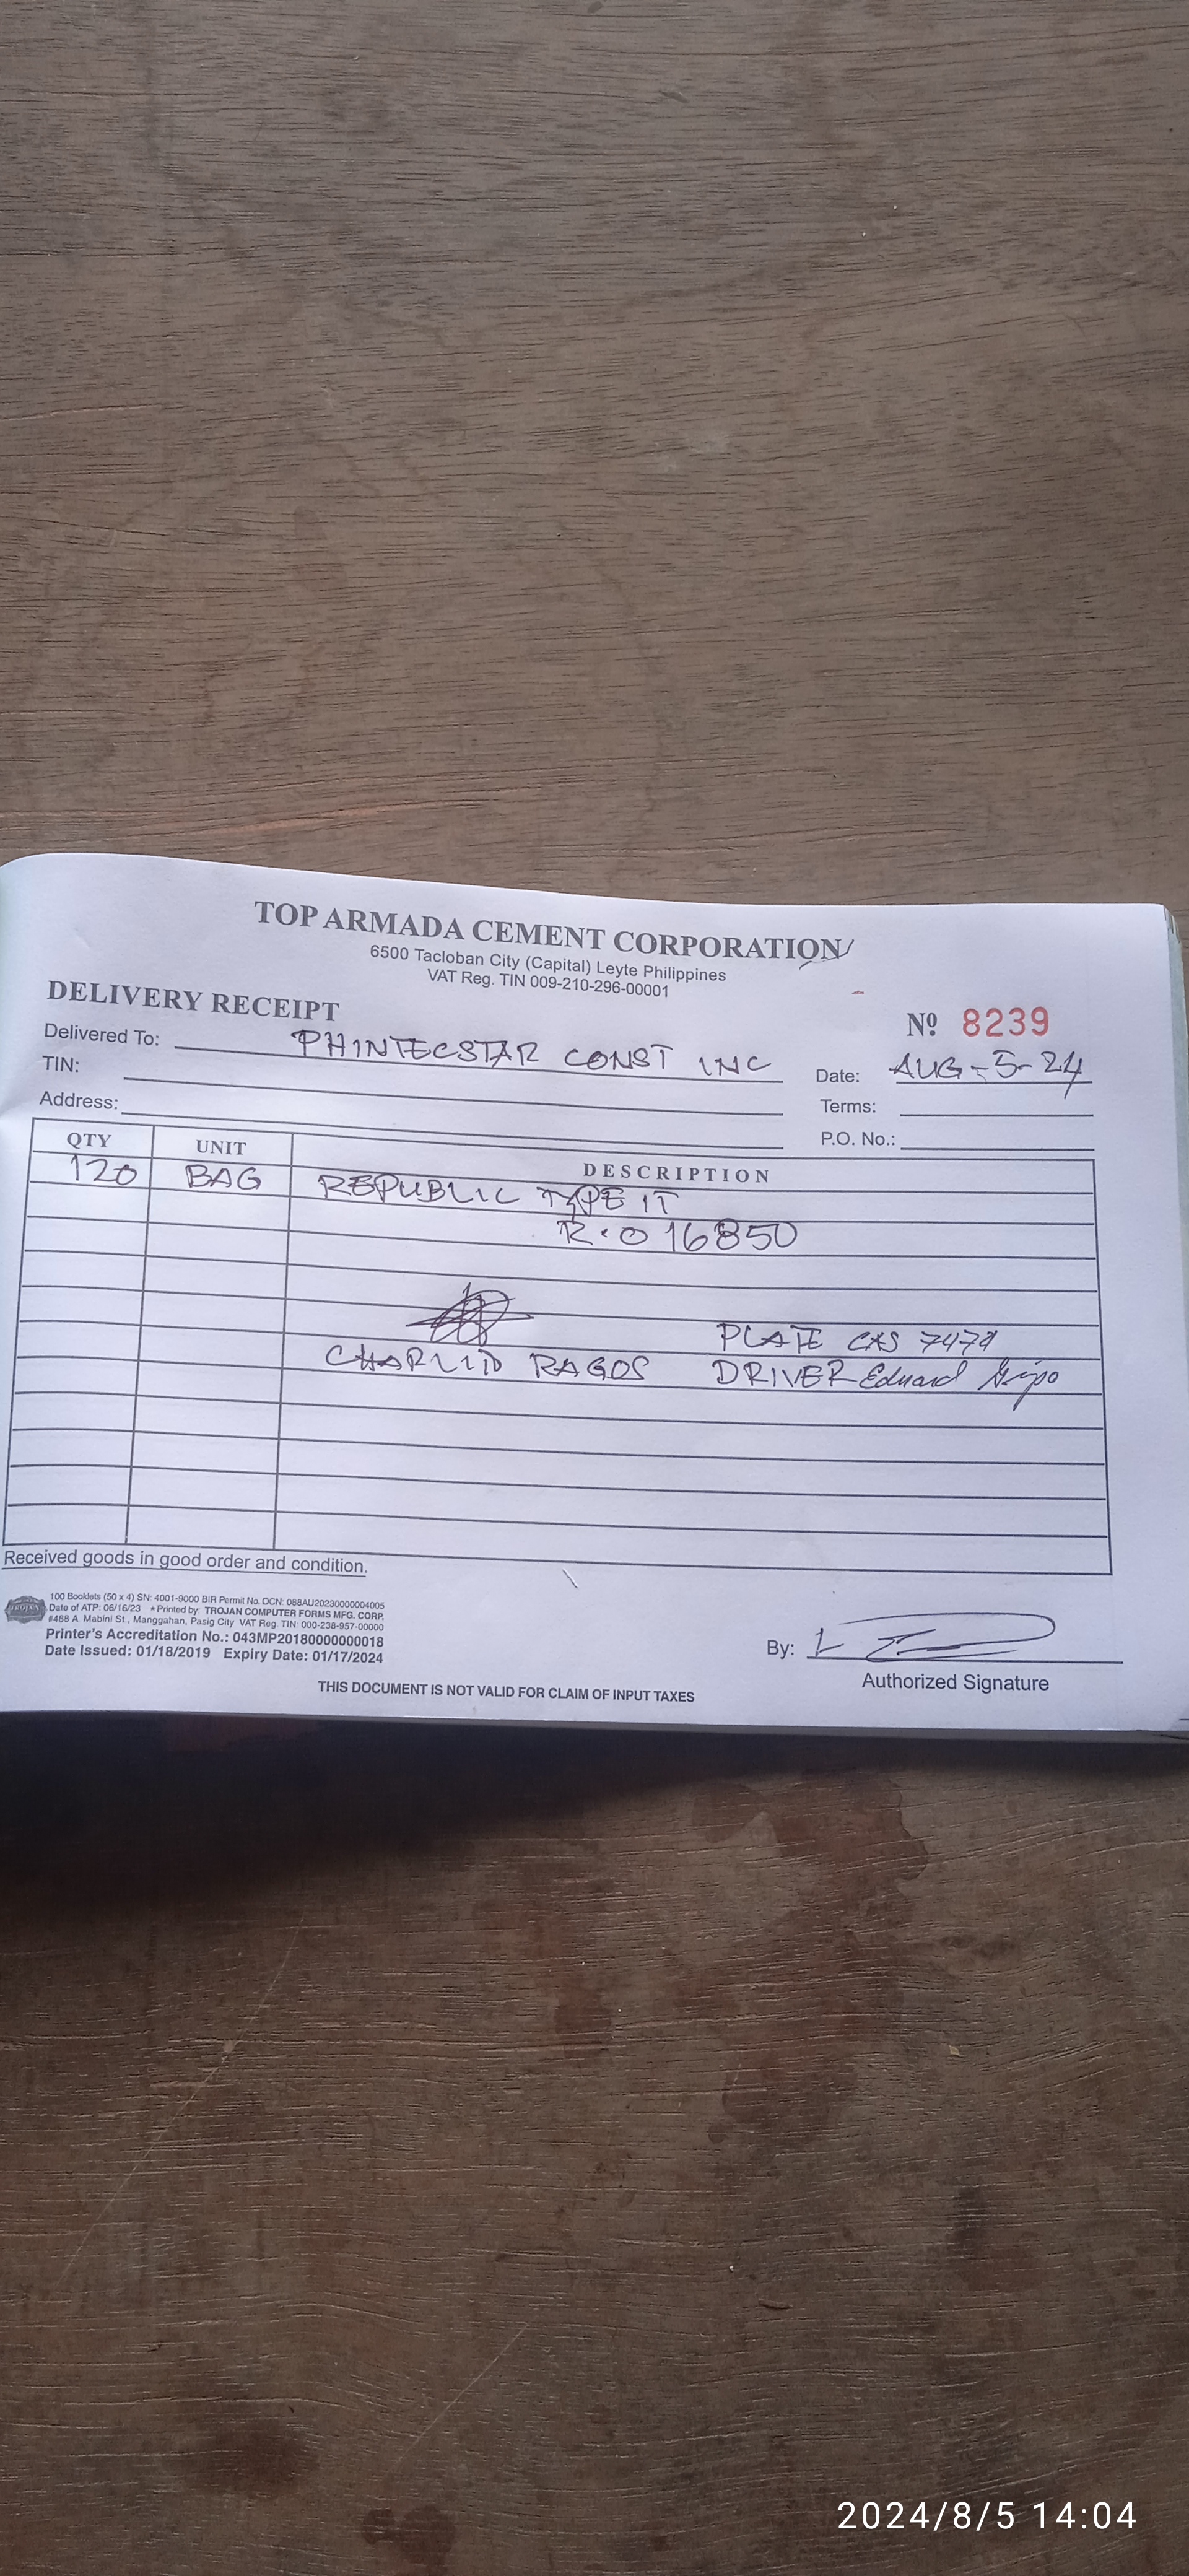 TOP ARMADA CEMENT CORPORATION
6500 Tacloban City (Capital) Leyte Philippines
VAT Reg. TIN 009-210-296-00001
DELIVERY RECEIPT
Nº 8239
Delivered To: PHINTECSTAR CONST INC
Date: AUG-5-24
TIN:
Terms:
Address:
P.O. No.:
QTY UNIT DESCRIPTION
120 BAG REPUBLIC TYPE IT
R.O 16850
PLATE CAS
RAGOS DRIVER Eduard
Received goods in good order and condition.
100 Booklets (50 x 4) SN: 4001-9000 BIR Permit No. OCN: 088AU20230000004005
Date of ATP: 06/16/23 * Printed by: TROJAN COMPUTER FORMS MFG. CORP.
#488 A. Mabini St., Manggahan, Pasig City VAT Reg. TIN: 000-238-957-00000
Printer's Accreditation No.: 043MP20180000000018
Date Issued: 01/18/2019 Expiry Date: 01/17/2024
By:
Authorized Signature
THIS DOCUMENT IS NOT VALID FOR CLAIM OF INPUT TAXES
2024/8/5 14:04